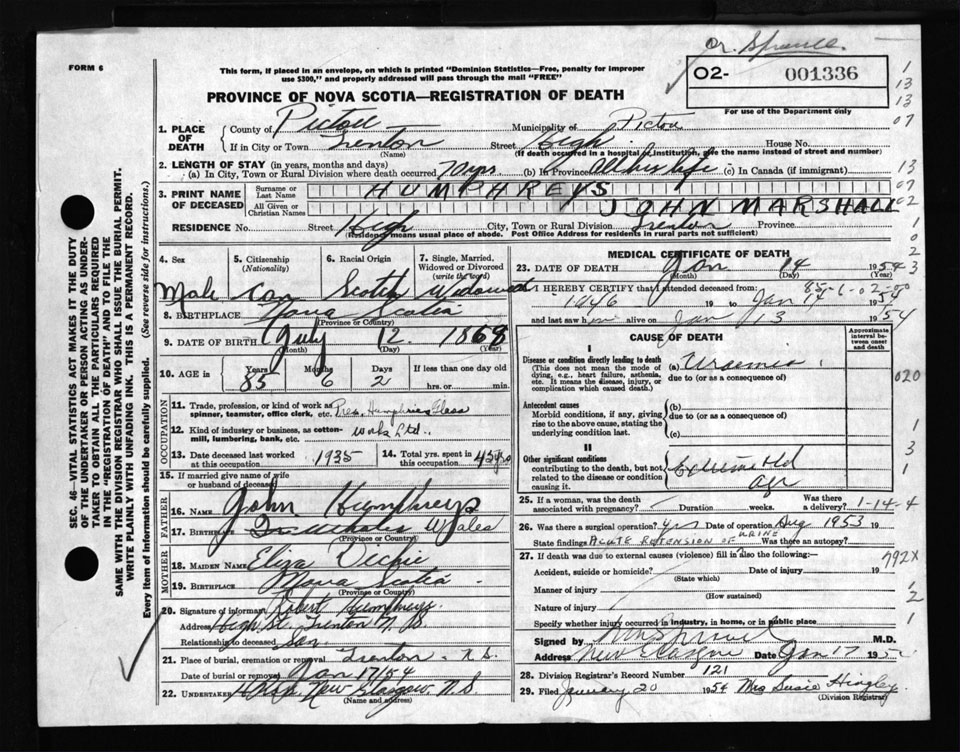 Dr. Sproull.
FORM 6
This form, if placed in an envelope, on which is printed "Dominion Statistics—Free, penalty for improper
use $300," and properly addressed will pass through the mail "FREE"
02- 001336
For use of the Department only
PROVINCE OF NOVA SCOTIA—REGISTRATION OF DEATH
1. PLACE OF DEATH County of Pictou Municipality of Pictou
If in City or Town Trenton Street High House No.
(Name) (If death occurred in a hospital or institution, give the name instead of street and number)
2. LENGTH OF STAY (in years, months and days)
(a) In City, Town or Rural Division where death occurred 70 yrs (b) In Province All his life (c) In Canada (if immigrant)
3. PRINT NAME OF DECEASED Surname or Last Name HUMPHREYS
All Given or Christian Names JOHN MARSHALL
RESIDENCE No. Street High City, Town or Rural Division Trenton Province
(Residence means usual place of abode. Post Office Address for residents in rural parts not sufficient)
4. Sex Male
5. Citizenship (Nationality) Can
6. Racial Origin Scotch
7. Single, Married, Widowed or Divorced (write the word) Widowed
8. BIRTHPLACE Nova Scotia
(Province or Country)
9. DATE OF BIRTH July 12. 1868
(Month) (Day) (Year)
10. AGE in Years Months Days If less than one day old
85 6 2 hrs. or min.
OCCUPATION
11. Trade, profession, or kind of work as spinner, teamster, office clerk, etc. Pres. Humphries Glass
12. Kind of industry or business, as cotton-mill, lumbering, bank, etc. Works Ltd.
13. Date deceased last worked at this occupation 1935
14. Total yrs. spent in this occupation 45 yrs
15. If married give name of wife or husband of deceased
FATHER
16. Name John Humphreys
17. Birthplace Wales
(Province or Country)
MOTHER
18. Maiden Name Eliza
19. Birthplace Nova Scotia
(Province or Country)
20. Signature of informant Robert Humphreys
Address High St. Trenton N.S.
Relationship to deceased Son
21. Place of burial, cremation or removal Trenton N.S.
Date of burial or removal Jan 17/54
22. Undertaker New Glasgow, N.S.
(Name and address)
MEDICAL CERTIFICATE OF DEATH
23. DATE OF DEATH Jan 14 1954
(Month) (Day)
85-1-02-00
I HEREBY CERTIFY that I attended deceased from:
1946 19 to Jan 14 1954
and last saw him alive on Jan 13 1954
CAUSE OF DEATH
Approximate interval between onset and death
I
Disease or condition directly leading to death
(This does not mean the mode of dying, e.g., heart failure, asthenia, etc. It means the disease, injury, or complication which caused death.)
(a) Uraemia
due to (or as a consequence of)
Antecedent causes
Morbid conditions, if any, giving rise to the above cause, stating the underlying condition last.
(b)
due to (or as a consequence of)
(c)
II
Other significant conditions
contributing to the death, but not related to the disease or condition causing it.
Extreme old age
25. If a woman, was the death associated with pregnancy? Duration weeks. Was there a delivery?
1-14-4
26. Was there a surgical operation? yes Date of operation Aug 1953 19
State findings ACUTE RETENSION OF URINE Was there an autopsy?
27. If death was due to external causes (violence) fill in also the following:
792X
Accident, suicide or homicide? Date of injury 19
(State which)
Manner of injury
(How sustained)
Nature of injury
Specify whether injury occurred in industry, in home, or in public place
Signed by M.D.
Address New Glasgow Date Jan 17 195
28. Division Registrar's Record Number 121
29. Filed January 20 1954 Mrs Susie Hingley
(Division Registrar)
SEC. 46—VITAL STATISTICS ACT MAKES IT THE DUTY
OF THE UNDERTAKER OR PERSON ACTING AS UNDER-
TAKER TO OBTAIN ALL THE PARTICULARS REQUIRED
IN THE "REGISTRATION OF DEATH" AND TO FILE THE
SAME WITH THE DIVISION REGISTRAR WHO SHALL ISSUE THE BURIAL PERMIT.
WRITE PLAINLY WITH UNFADING INK. THIS IS A PERMANENT RECORD.
Every item of information should be carefully supplied. (See reverse side for instructions.)
1
13
13
07
13
07
02
1
0
2
3
020
1
3
1
1
2
1